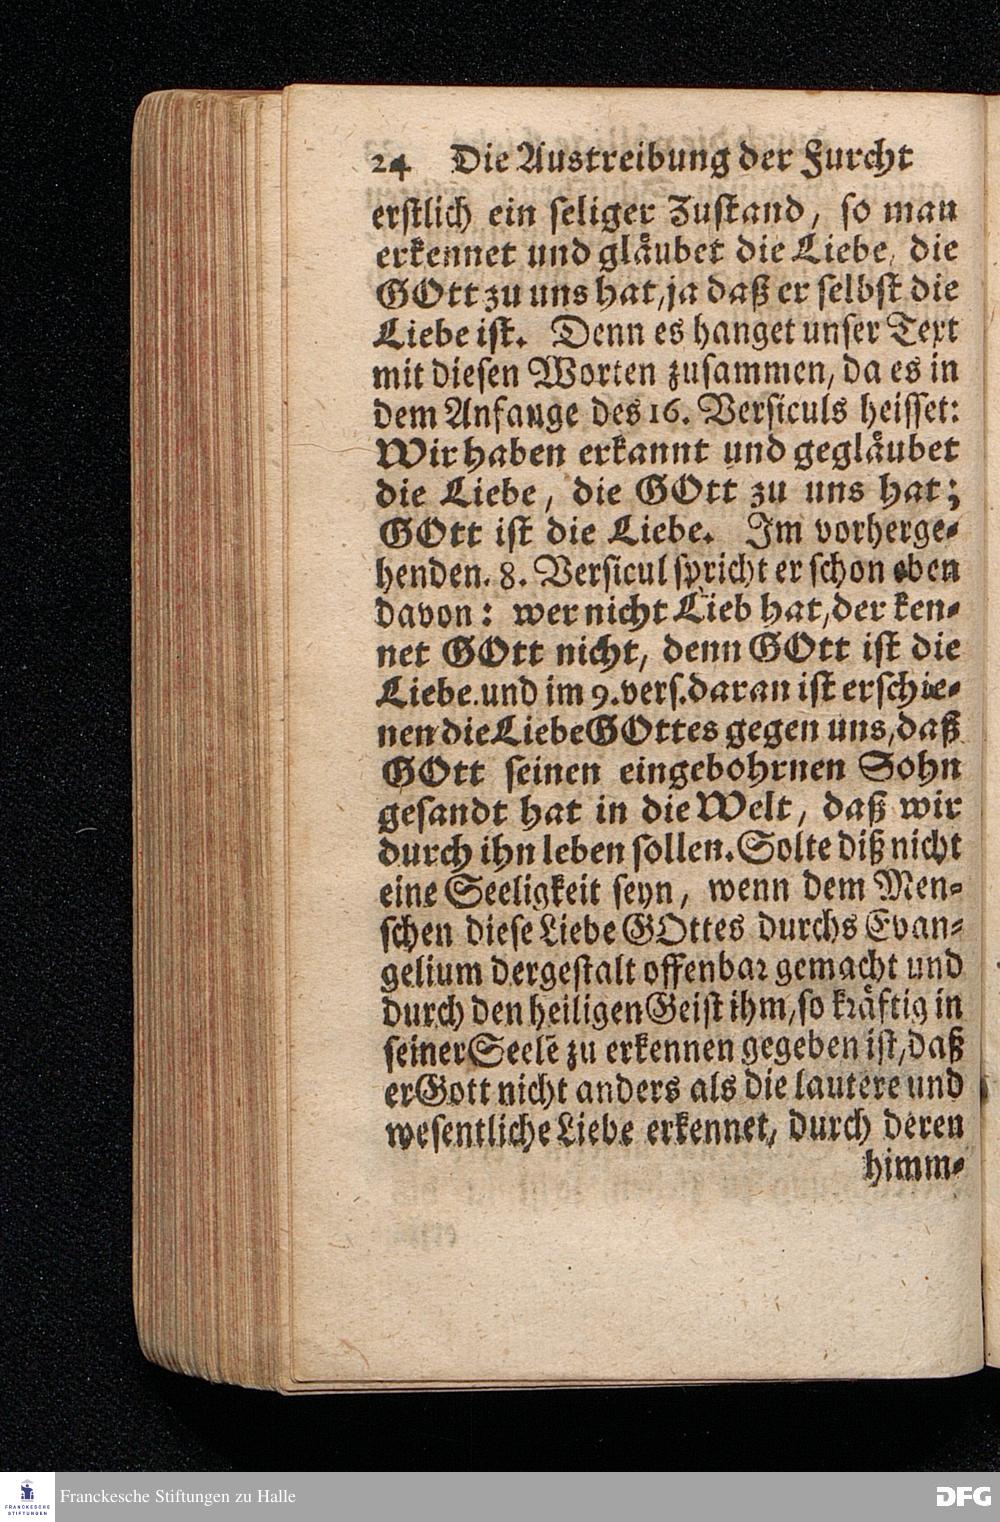 24 Die Austreibung der Furcht
erstlich ein seliger Zustand, so man
erkennet und gläubet die Liebe, die
GOtt zu uns hat, ja daß er selbst die
Liebe ist. Denn es hanget unser Text
mit diesen Worten zusammen, da es in
dem Anfange des 16. Versiculs heisset:
Wir haben erkannt und gegläubet
die Liebe, die GOtt zu uns hat;
GOtt ist die Liebe. Im vorherge-
henden. 8. Versicul spricht er schon eben
davon: wer nicht Lieb hat, der ken-
net GOtt nicht, denn GOtt ist die
Liebe. und im 9. vers. daran ist erschie-
nen die Liebe GOttes gegen uns, daß
GOtt seinen eingebohrnen Sohn
gesandt hat in die Welt, daß wir
durch ihn leben sollen. Solte diß nicht
eine Seeligkeit seyn, wenn dem Men-
schen diese Liebe GOttes durchs Evan-
gelium dergestalt offenbar gemacht und
durch den heiligen Geist ihm, so kräftig in
seiner Seele zu erkennen gegeben ist, daß
er Gott nicht anders als die lautere und
wesentliche Liebe erkennet, durch deren
himm-
FRANCKESCHE
STIFTUNGEN
Franckesche Stiftungen zu Halle
DFG